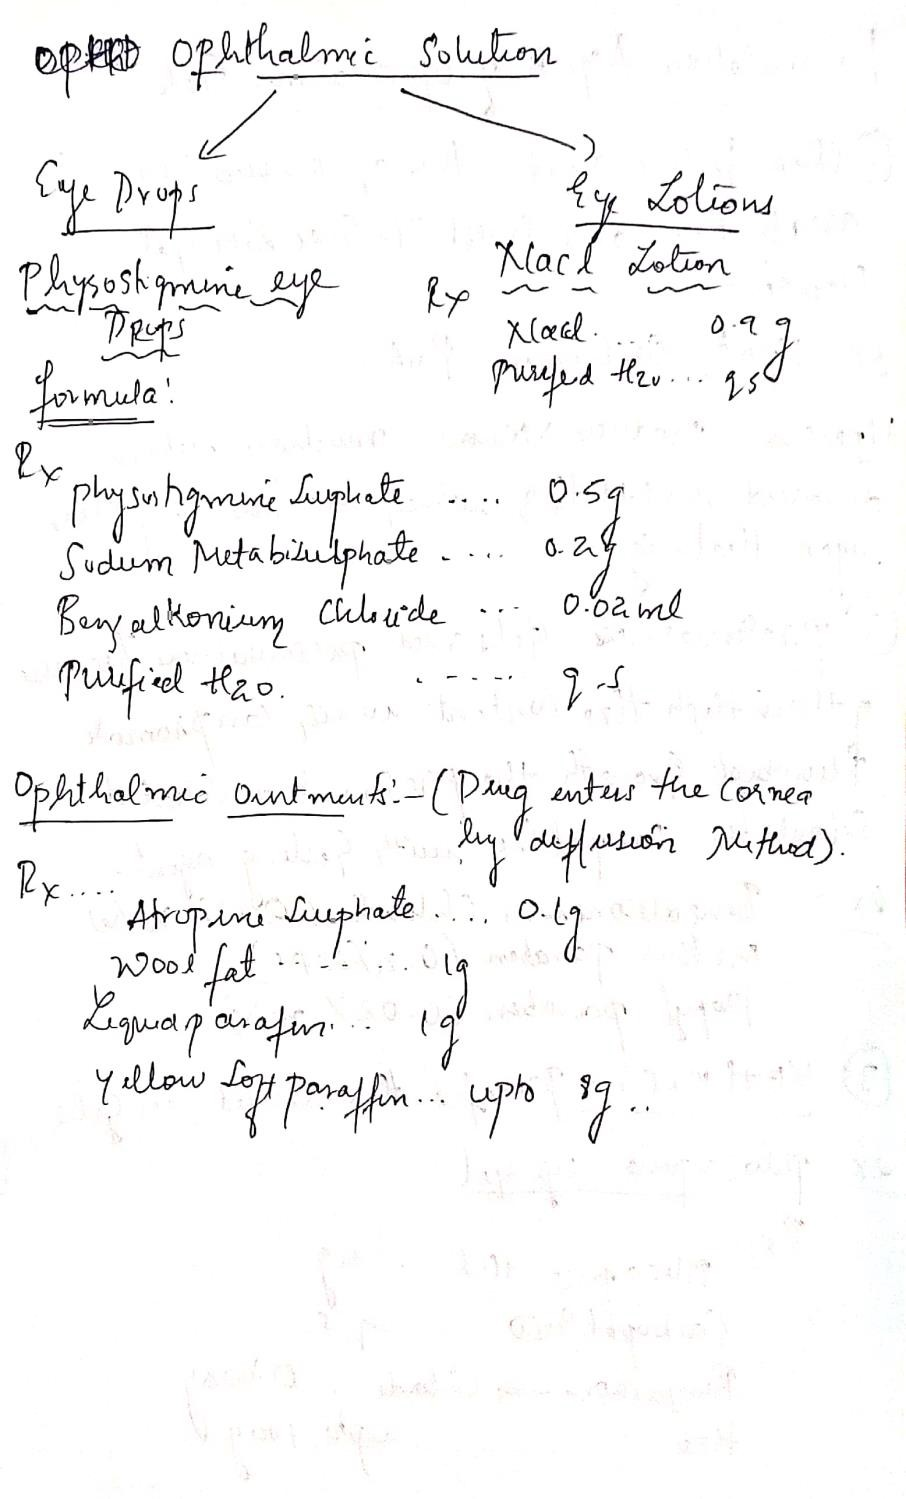 Ophthalmic Solution
Eye Drops
Physostigmine eye
Drops
formula:
Rx
physostigmine Sulphate .... 0.5g
Sodium Metabisulphate .... 0.2g
Benzalkonium Chloride ... 0.02 ml
Purified H2O. ...... q.s
Eye Lotions
Nacl Lotion
Rx
Nacl. .... 0.9 g
purified H2O... qs
Ophthalmic Ointments:- (Drug enters the Cornea
by diffusion Method).
Rx....
Atropine Sulphate .... 0.1g
Wool fat ....... 1g
Liquid parafin... 1g
Yellow Soft paraffin... upto 8g..